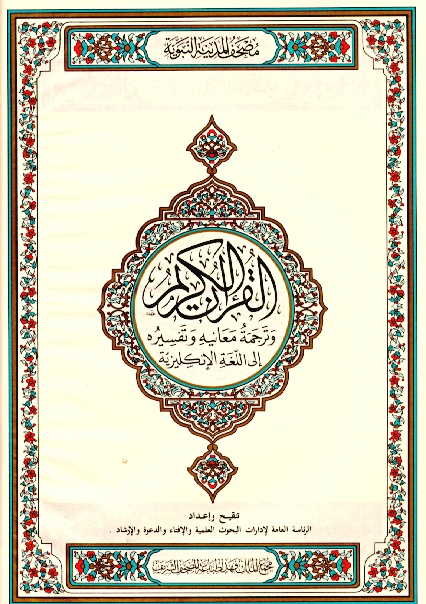 مصحف المدينة النبوية
القرآن الكريم
وَتَرجَمَةُ مَعَانِيهِ وَتَفسِيرُه
إلى اللّغَةِ الإنكليزيّة
تنقيح وإعداد
الرئاسة العامة لإدارات البحوث العلمية والإفتاء والدعوة والإرشاد .
مجمع الملك فهد لطباعة المصحف الشريف